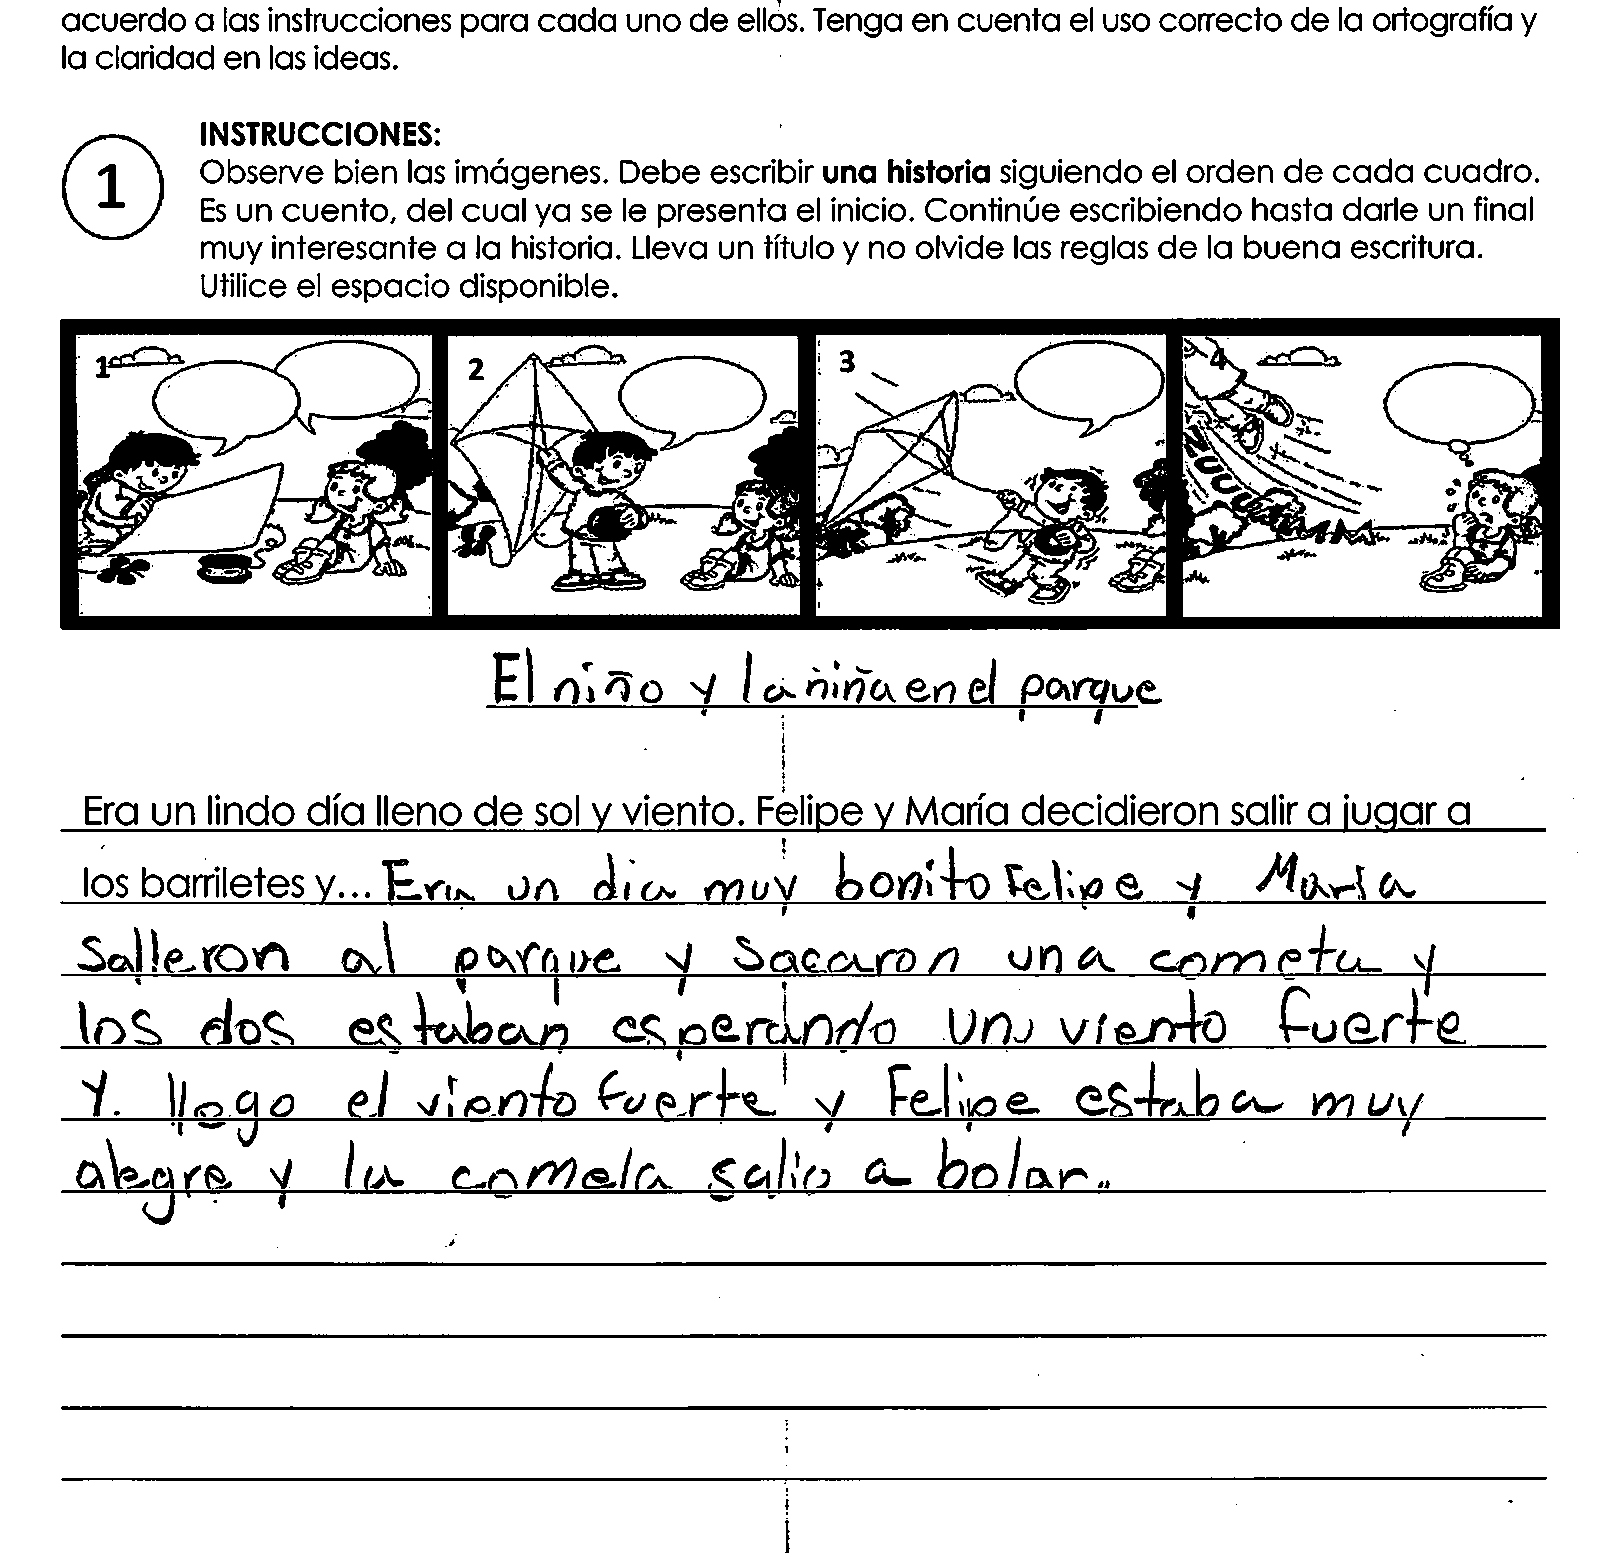 acuerdo a las instrucciones para cada uno de ellos. Tenga en cuenta el uso correcto de la ortografía y
la claridad en las ideas.
1
INSTRUCCIONES:
Observe bien las imágenes. Debe escribir una historia siguiendo el orden de cada cuadro.
Es un cuento, del cual ya se le presenta el inicio. Continúe escribiendo hasta darle un final
muy interesante a la historia. Lleva un título y no olvide las reglas de la buena escritura.
Utilice el espacio disponible.
1 2 3 4
El niño y la niña en el parque
Era un lindo día lleno de sol y viento. Felipe y María decidieron salir a jugar a
los barriletes y... Era un dia muy bonito Felipe y Maria
salleron al parque y sacaron una cometa y
los dos estaban esperando un viento fuerte
y. llego el viento fuerte y Felipe estaba muy
alegre y la comela salio a bolar..